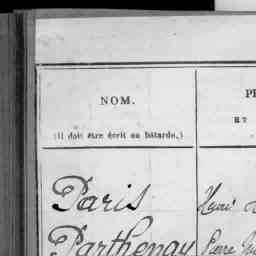 NOM.
(il doit être écrit en bâtarde.)
ET
Paris
Henri
Parthenay
Pierre